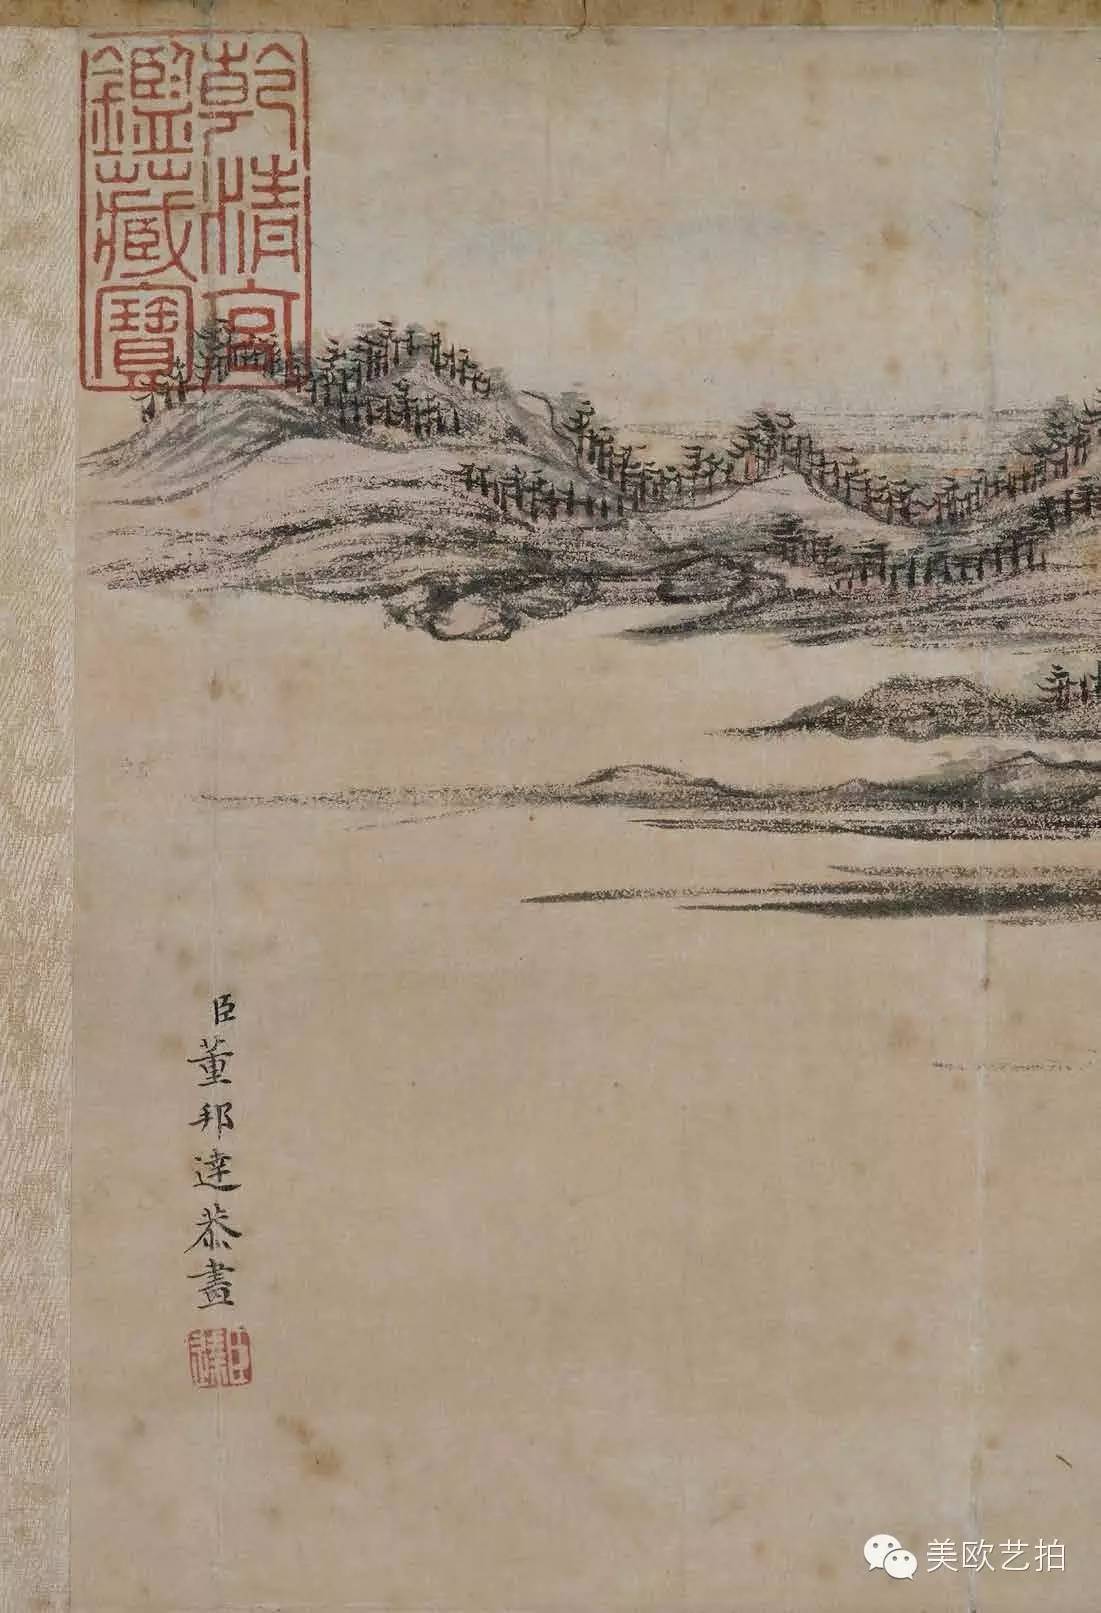 乾清宮
鑑藏寶
臣董邦達恭畫
美欧艺拍